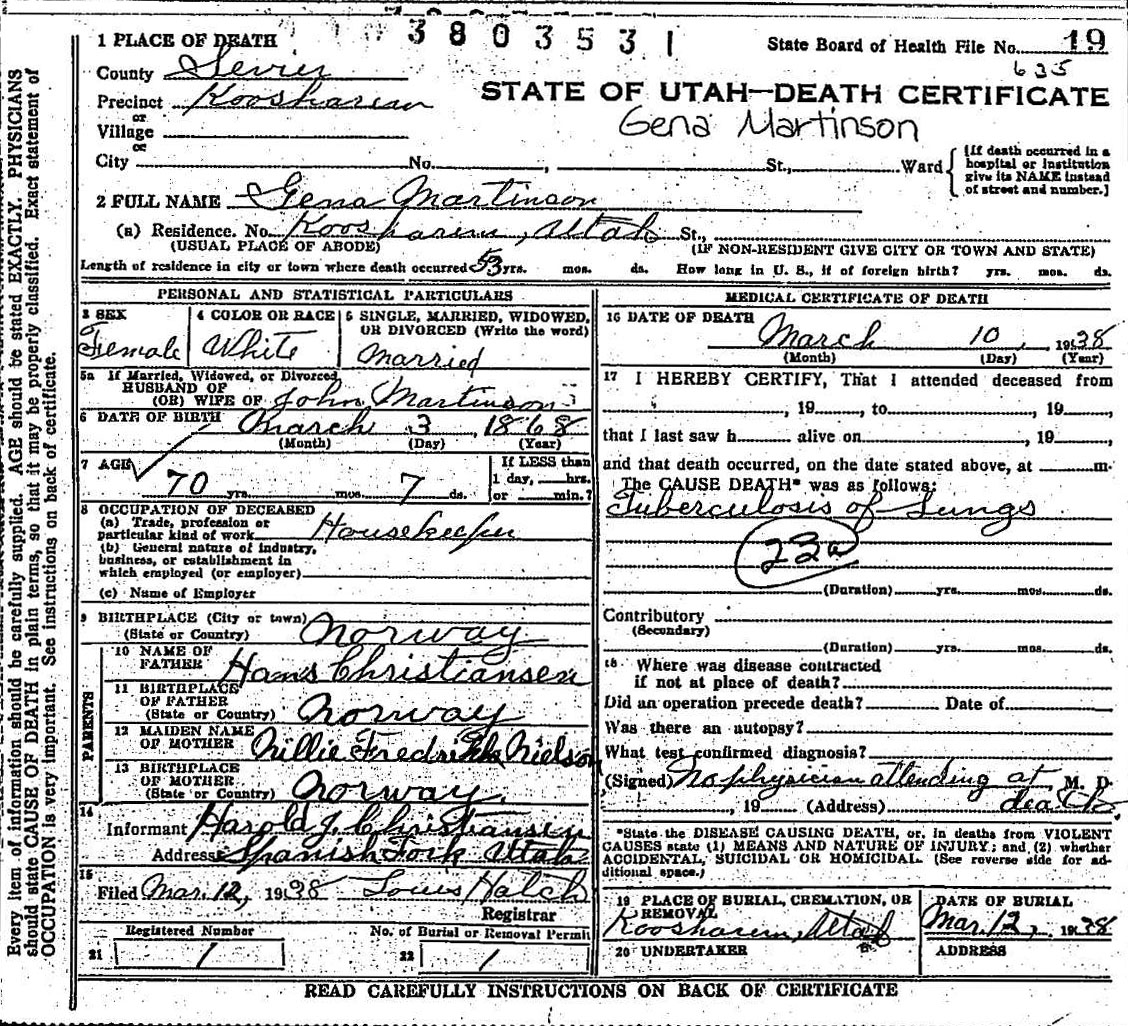 3803531
1 PLACE OF DEATH
State Board of Health File No. 19
635
County Sevier
STATE OF UTAH—DEATH CERTIFICATE
Precinct Koosharem
or
Village
Gena Martinson
or
City No. , St., Ward
[If death occurred in a
hospital or institution
give its NAME instead
of street and number.]
2 FULL NAME Gena Martinson
(a) Residence. No. Koosharem, Utah St.,
(USUAL PLACE OF ABODE) (IF NON-RESIDENT GIVE CITY OR TOWN AND STATE)
Length of residence in city or town where death occurred 53 yrs. mos. ds. How long in U. S., if of foreign birth? yrs. mos. ds.
PERSONAL AND STATISTICAL PARTICULARS
3 SEX
Female
4 COLOR OR RACE
White
5 SINGLE, MARRIED, WIDOWED,
OR DIVORCED (Write the word)
Married
5a If Married, Widowed, or Divorced
HUSBAND OF
(OR) WIFE OF John Martinson
6 DATE OF BIRTH March 3, 1868
(Month) (Day) (Year)
7 AGE
70 yrs. mos. 7 ds.
If LESS than
1 day, hrs.
or min.?
8 OCCUPATION OF DECEASED
(a) Trade, profession or
particular kind of work Housekeeper
(b) General nature of industry,
business, or establishment in
which employed (or employer)
(c) Name of Employer
9 BIRTHPLACE (City or town)
(State or Country) Norway
PARENTS
10 NAME OF
FATHER Hans Christiansen
11 BIRTHPLACE
OF FATHER
(State or Country) Norway
12 MAIDEN NAME
OF MOTHER Nillie Fredrikk Nielson
13 BIRTHPLACE
OF MOTHER
(State or Country) Norway.
14
Informant Harold J. Christiansen
Address Spanish Fork Utah
15
Filed Mar. 12, 1938 Louis Hatch
Registrar
Registered Number No. of Burial or Removal Permit
21 1 22 1
MEDICAL CERTIFICATE OF DEATH
16 DATE OF DEATH
March 10, 1938
(Month) (Day) (Year)
17 I HEREBY CERTIFY, That I attended deceased from
, 19 , to , 19 ,
that I last saw h alive on , 19 ,
and that death occurred, on the date stated above, at m.
The CAUSE DEATH* was as follows:
Tuberculosis of Lungs
23a
(Duration) yrs. mos. ds.
Contributory
(Secondary)
(Duration) yrs. mos. ds.
18 Where was disease contracted
if not at place of death?
Did an operation precede death? Date of
Was there an autopsy?
What test confirmed diagnosis?
(Signed) No physician attending at M. D.
, 19 (Address) death
*State the DISEASE CAUSING DEATH, or, in deaths from VIOLENT
CAUSES state (1) MEANS AND NATURE OF INJURY; and (2) whether
ACCIDENTAL, SUICIDAL OR HOMICIDAL. (See reverse side for ad-
ditional space.)
19 PLACE OF BURIAL, CREMATION, OR
REMOVAL
Koosharem, Utah
DATE OF BURIAL
Mar. 12, 1938
20 UNDERTAKER ADDRESS
READ CAREFULLY INSTRUCTIONS ON BACK OF CERTIFICATE
Every item of information should be carefully supplied. AGE should be stated EXACTLY. PHYSICIANS
should state CAUSE OF DEATH in plain terms, so that it may be properly classified. Exact statement of
OCCUPATION is very important. See instructions on back of certificate.